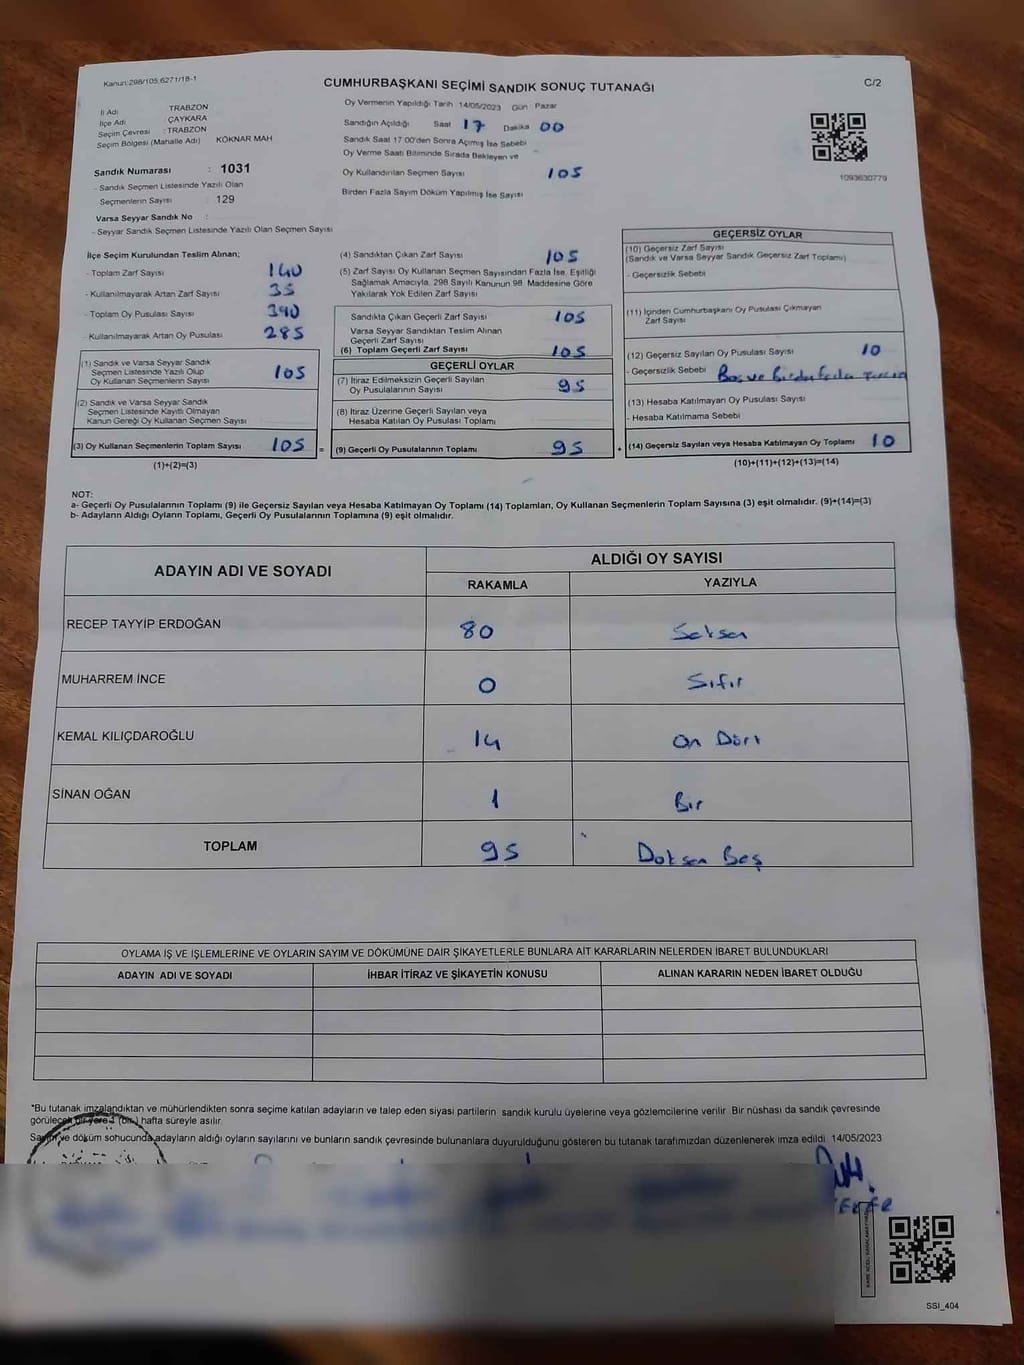 Kanun:298/105,6271/18-1
CUMHURBAŞKANI SEÇİMİ SANDIK SONUÇ TUTANAĞI
C/2
İl Adı TRABZON
İlçe Adı ÇAYKARA
Seçim Çevresi : TRABZON
Seçim Bölgesi (Mahalle Adı) KÖKNAR MAH
Sandık Numarası : 1031
- Sandık Seçmen Listesinde Yazılı Olan
Seçmenlerin Sayısı : 129
Varsa Seyyar Sandık No :
- Seyyar Sandık Seçmen Listesinde Yazılı Olan Seçmen Sayısı
Oy Vermenin Yapıldığı Tarih 14/05/2023 Gün Pazar
Sandığın Açıldığı Saat 17 Dakika 00
Sandık Saat 17 00'den Sonra Açımış İse Sebebi
Oy Verme Saati Bitiminde Sırada Bekleyen ve
Oy Kullandırılan Seçmen Sayısı 105
Birden Fazla Sayım Döküm Yapılmış İse Sayısı
1093630779
İlçe Seçim Kurulundan Teslim Alınan;
- Toplam Zarf Sayısı 140
- Kullanılmayarak Artan Zarf Sayısı 35
- Toplam Oy Pusulası Sayısı 390
- Kullanılmayarak Artan Oy Pusulası 285
(1) Sandık ve Varsa Seyyar Sandık
Seçmen Listesinde Yazılı Olup
Oy Kullanan Seçmenlerin Sayısı 105
(2) Sandık ve Varsa Seyyar Sandık
Seçmen Listesinde Kayıtlı Olmayan
Kanun Gereği Oy Kullanan Seçmen Sayısı
(3) Oy Kullanan Seçmenlerin Toplam Sayısı 105 =
(1)+(2)=(3)
(4) Sandıktan Çıkan Zarf Sayısı 105
(5) Zarf Sayısı Oy Kullanan Seçmen Sayısından Fazla İse, Eşitliği
Sağlamak Amacıyla, 298 Sayılı Kanunun 98. Maddesine Göre
Yakılarak Yok Edilen Zarf Sayısı
Sandıkta Çıkan Geçerli Zarf Sayısı 105
Varsa Seyyar Sandıktan Teslim Alınan
Geçerli Zarf Sayısı
(6) Toplam Geçerli Zarf Sayısı 105
GEÇERLİ OYLAR
(7) İtiraz Edilmeksizin Geçerli Sayılan
Oy Pusulalarının Sayısı 95
(8) İtiraz Üzerine Geçerli Sayılan veya
Hesaba Katılan Oy Pusulası Toplamı
(9) Geçerli Oy Pusulalarının Toplamı 95 +
GEÇERSİZ OYLAR
(10) Geçersiz Zarf Sayısı
(Sandık ve Varsa Seyyar Sandık Geçersiz Zarf Toplamı)
- Geçersizlik Sebebi
(11) İçinden Cumhurbaşkanı Oy Pusulası Çıkmayan
Zarf Sayısı
(12) Geçersiz Sayılan Oy Pusulası Sayısı 10
- Geçersizlik Sebebi Boş ve Birden Fazla
(13) Hesaba Katılmayan Oy Pusulası Sayısı
- Hesaba Katılmama Sebebi
(14) Geçersiz Sayılan veya Hesaba Katılmayan Oy Toplamı 10
(10)+(11)+(12)+(13)=(14)
NOT:
a- Geçerli Oy Pusulalarının Toplamı (9) ile Geçersiz Sayılan veya Hesaba Katılmayan Oy Toplamı (14) Toplamları, Oy Kullanan Seçmenlerin Toplam Sayısına (3) eşit olmalıdır. (9)+(14)=(3)
b- Adayların Aldığı Oyların Toplamı, Geçerli Oy Pusulalarının Toplamına (9) eşit olmalıdır.
ADAYIN ADI VE SOYADI
ALDIĞI OY SAYISI
RAKAMLA YAZIYLA
RECEP TAYYİP ERDOĞAN 80 Seksen
MUHARREM İNCE 0 Sıfır
KEMAL KILIÇDAROĞLU 14 On Dört
SİNAN OĞAN 1 Bir
TOPLAM 95 Doksan Beş
OYLAMA İŞ VE İŞLEMLERİNE VE OYLARIN SAYIM VE DÖKÜMÜNE DAİR ŞİKAYETLERLE BUNLARA AİT KARARLARIN NELERDEN İBARET BULUNDUKLARI
ADAYIN ADI VE SOYADI İHBAR İTİRAZ VE ŞİKAYETİN KONUSU ALINAN KARARIN NEDEN İBARET OLDUĞU
*Bu tutanak imzalandıktan ve mühürlendikten sonra seçime katılan adayların ve talep eden siyasi partilerin sandık kurulu üyelerine veya gözlemcilerine verilir. Bir nüshası da sandık çevresinde
görülecek bir yere 1 (bir) hafta süreyle asılır.
Sayım ve döküm sonucunda adayların aldığı oyların sayılarını ve bunların sandık çevresinde bulunanlara duyurulduğunu gösteren bu tutanak tarafımızdan düzenlenerek imza edildi. 14/05/2023
SSI_404